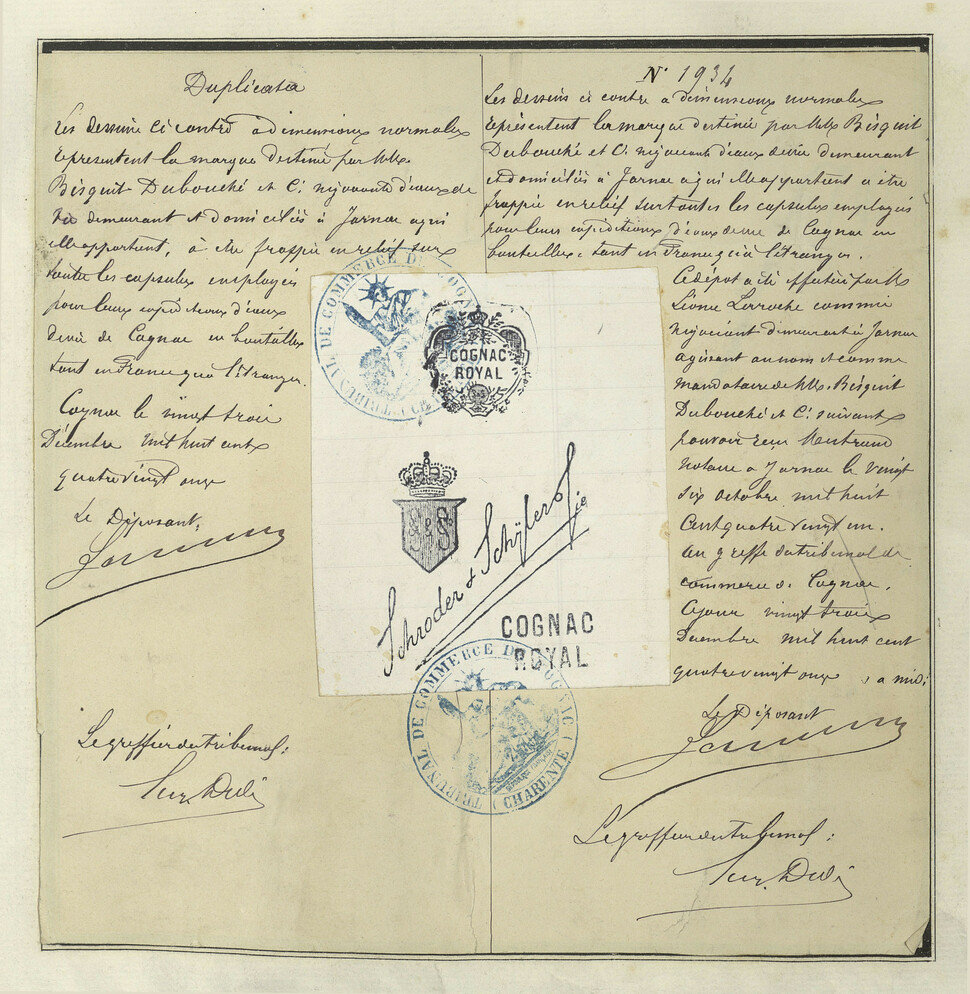 Duplicata
Les dessins ci contre à dimensions normales
représentent la marque destinée par MM.
Bisquit Dubouché et Cie négociants d'eaux de
vie demeurant et domiciliés à Jarnac à qui
elle appartient, à être frappée en relief sur
toutes les capsules employées
pour leurs expéditions d'eaux
de vie de Cognac en bouteilles
tant en France qu'à l'étranger.
Cognac le vingt trois
Décembre mil huit cent
quatre vingt onze
Le Déposant:
Le greffier du tribunal:
N° 1934
Les dessins ci contre à dimensions normales
représentent la marque destinée par MM. Bisquit
Dubouché et Cie négociants d'eaux de vie demeurant
et domiciliés à Jarnac à qui elle appartient à être
frappée en relief sur toutes les capsules employées
pour leurs expéditions d'eaux de vie de Cognac en
bouteilles, tant en France qu'à l'étranger.
Ce dépôt a été effectué par M.
Larroche commis
négociant demeurant à Jarnac
agissant au nom et comme
mandataire de MM. Bisquit
Dubouché et Cie suivant
pouvoir reçu
notaire à Jarnac le vingt
six octobre mil huit
cent quatre vingt un.
Au greffe du tribunal de
commerce de Cognac.
Ce jour vingt trois
Décembre mil huit cent
quatre vingt onze, à midi
Le Déposant
Le greffier du tribunal:
TRIBUNAL DE COMMERCE DE COGNAC
COGNAC
ROYAL
S & S
Schröder & Schÿler & Cie
COGNAC
ROYAL
TRIBUNAL DE COMMERCE DE COGNAC (CHARENTE)